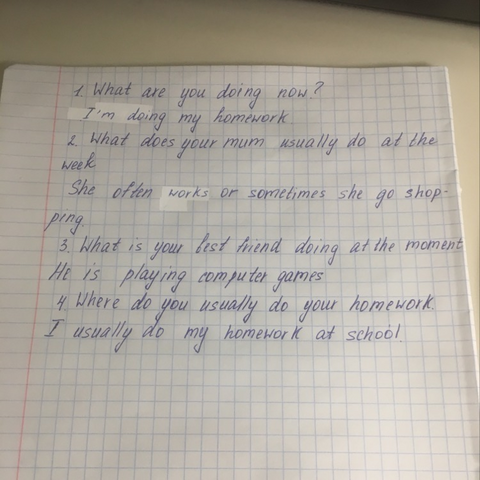 1. What are you doing now?
I'm doing my homework
2. What does your mum usually do at the
week
She often works or sometimes she go shop-
ping.
3. What is your best friend doing at the moment
He is playing computer games
4. Where do you usually do your homework.
I usually do my homework at school.